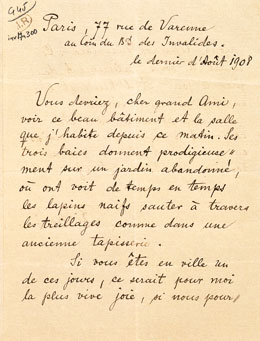 G45
J.R
inv Nº 300
Paris 77 rue de Varenne
au coin du Bd des Invalides.
le dernier d'Août 1908
Vous devriez, cher grand Ami,
voir ce beau bâtiment et la salle
que j'habite depuis ce matin. Ses
trois baies donnent prodigieuse"
ment sur un jardin abandonné,
où ont voit de temps en temps
les lapins naïfs sauter à travers
les treillages comme dans une
ancienne tapisserie.
Si vous êtes en ville un
de ces jours, ce serait pour moi
la plus vive joie, si nous pour,